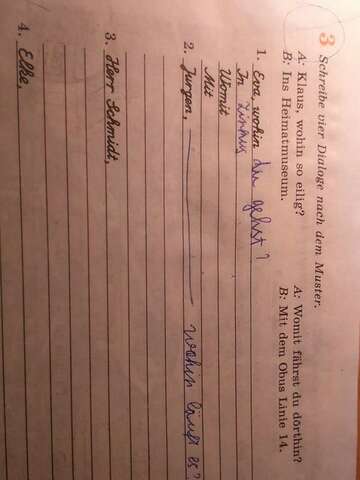 3 Schreibe vier Dialoge nach dem Muster.
A: Klaus, wohin so eilig?
B: Ins Heimatmuseum.
A: Womit fährst du dorthin?
B: Mit dem Obus Linie 14.
1. Eva, wohin du gehst?
In
Womit
Mit
2. Jurgen, wohin läuft es?
3. Herr Schmidt,
4. Elke,